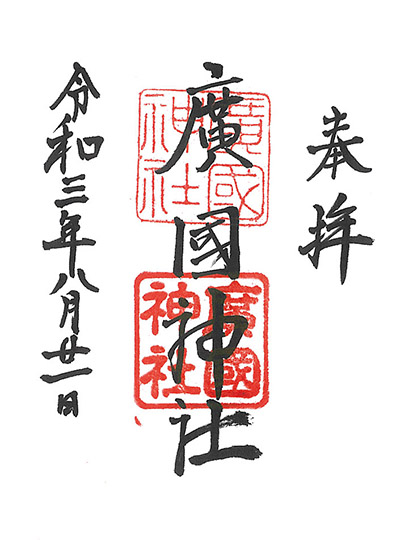 奉拝
廣國神社
廣國神社
廣國神社
令和三年八月廿一日